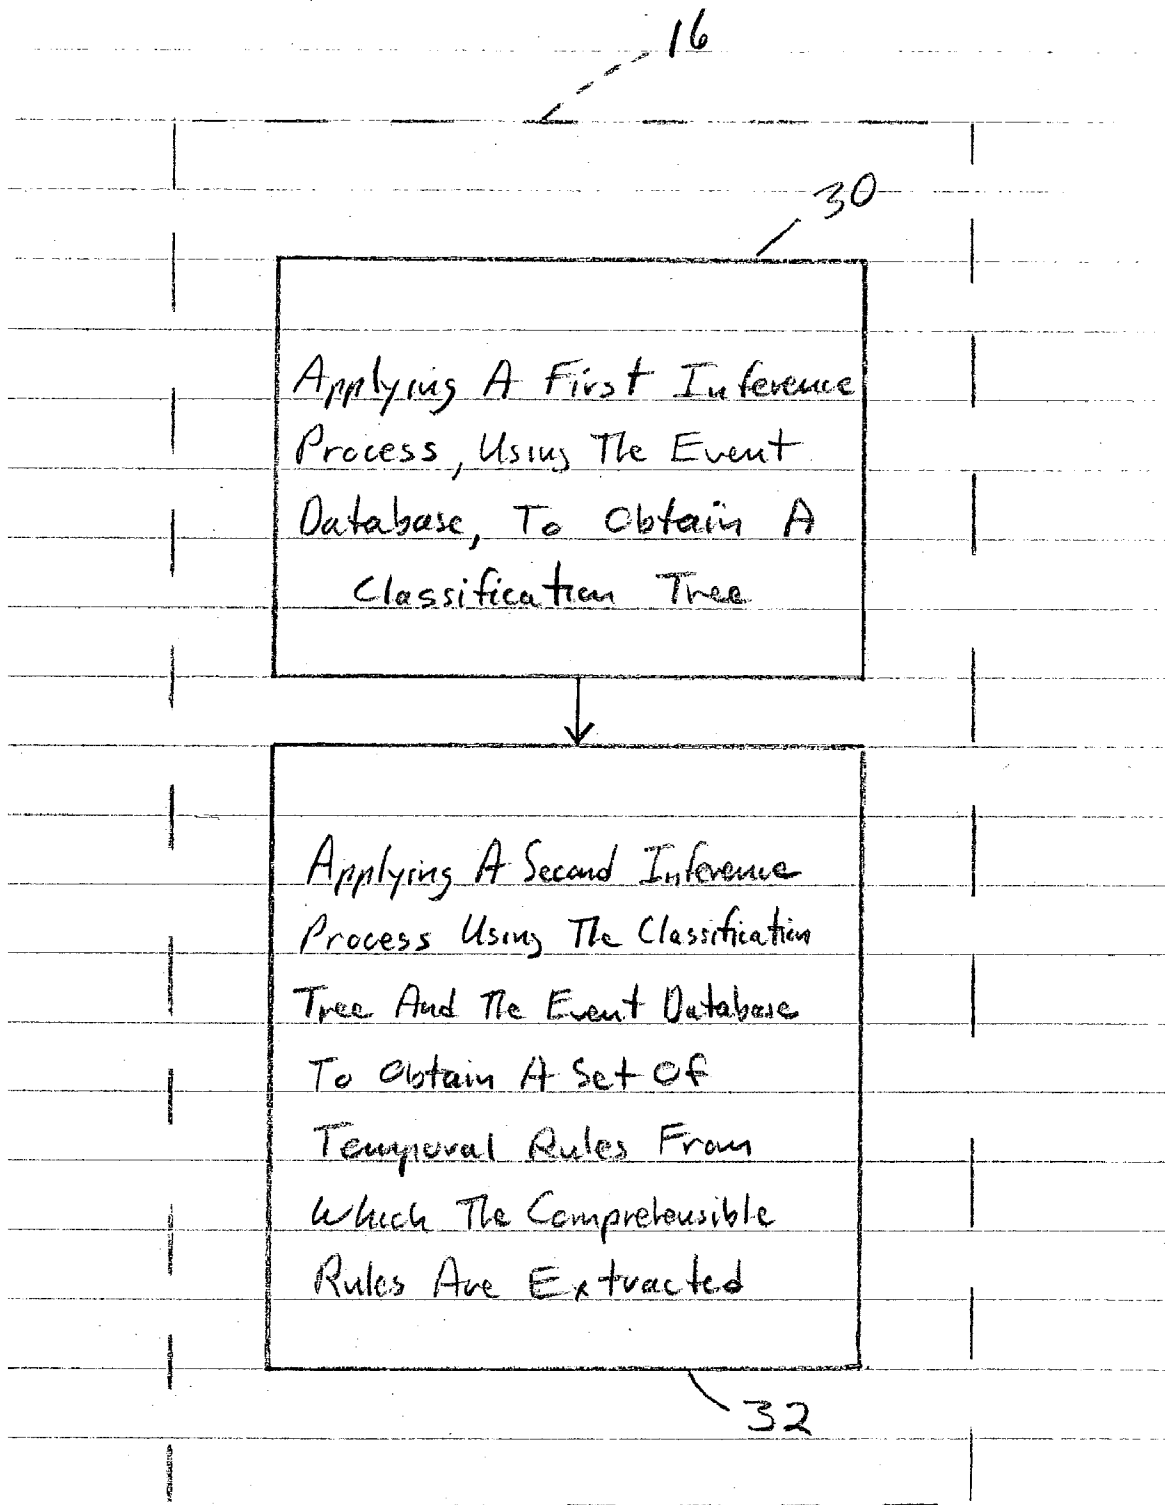 16
30
Applying A First Inference
Process, Using The Event
Database, To Obtain A
Classification Tree
Applying A Second Inference
Process Using The Classification
Tree And The Event Database
To Obtain A Set Of
Temporal Rules From
Which The Comprehensible
Rules Are Extracted
32